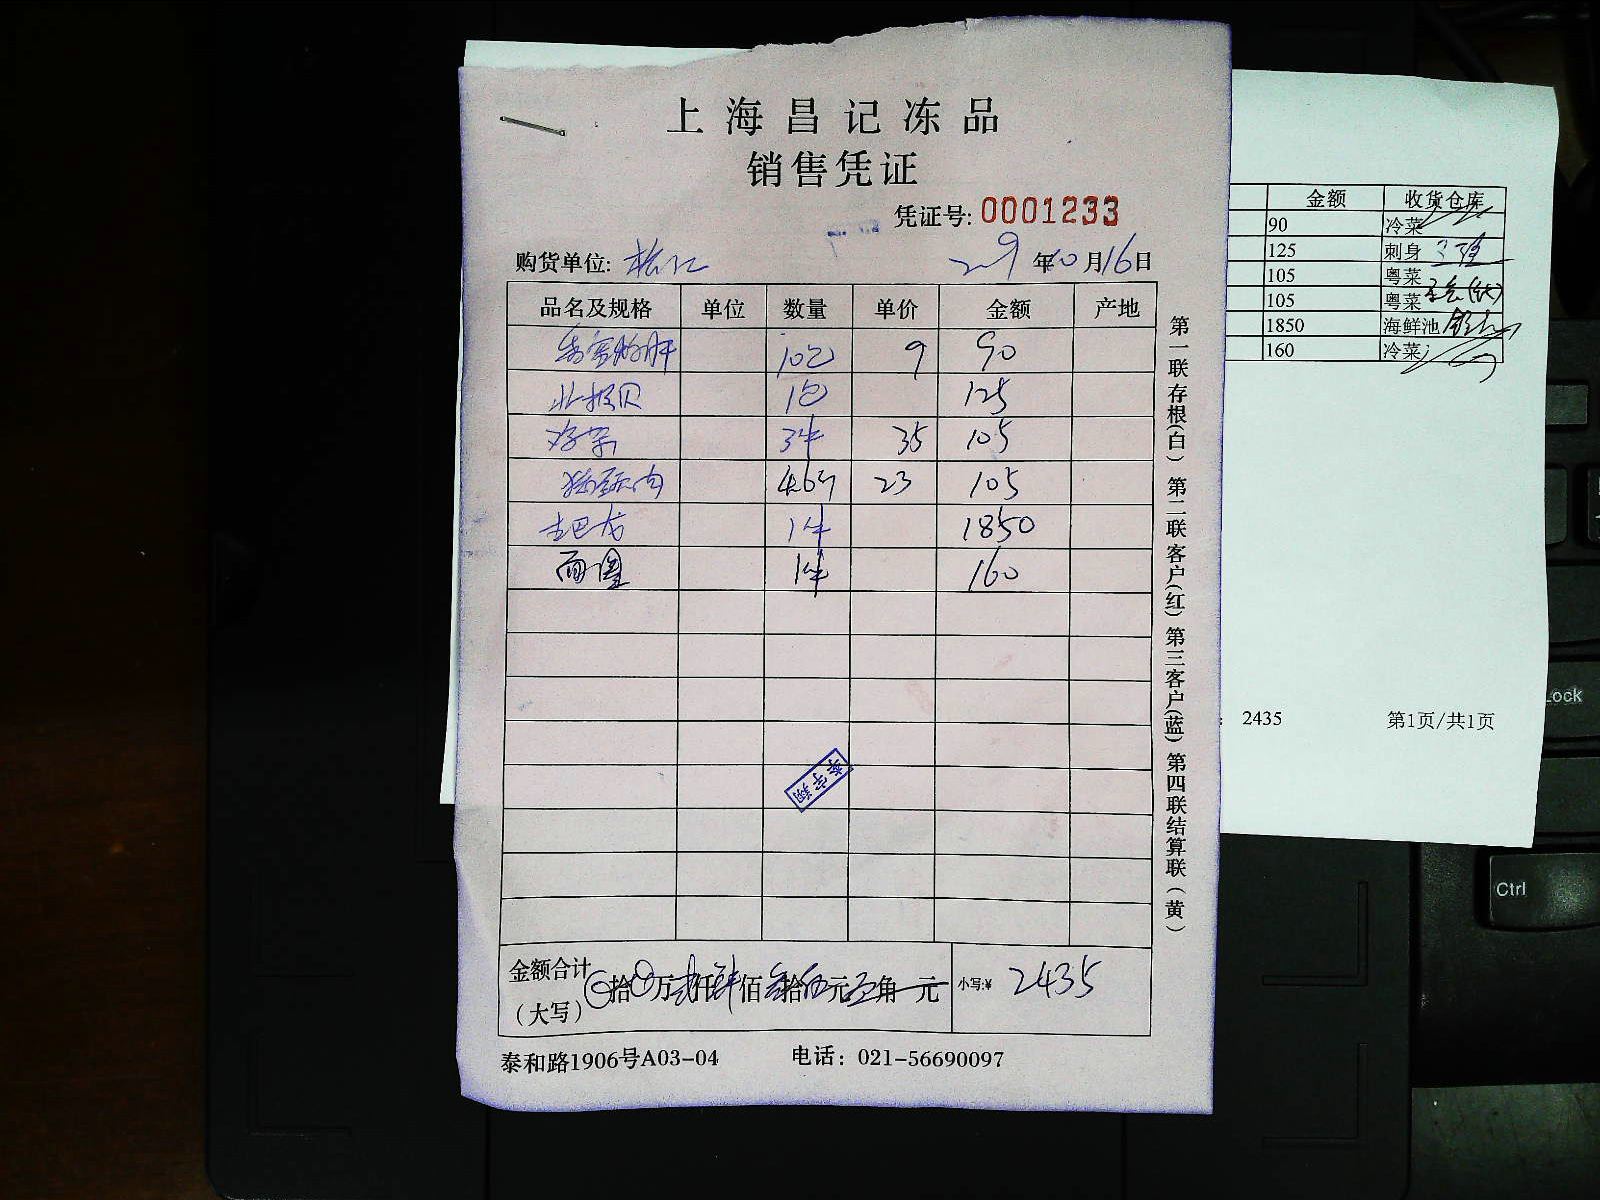 上海昌记冻品
销售凭证
凭证号: 0001233
购货单位: 松江 年10月16日
品名及规格 单位 数量 单价 金额 产地
10包 9 90
北极贝 1包 125
3件 35 105
猪颈肉 4.6斤 23 105
1件 1850
面包 1件 160
李宇翔
金额合计(大写) 拾 万 贰仟肆佰叁拾伍元 角 元 小写:¥ 2435
泰和路1906号A03-04 电话: 021-56690097
第一联存根(白) 第二联客户(红) 第三客户(蓝) 第四联结算联(黄)
金额 收货仓库
90 冷菜
125 刺身
105 粤菜
105 粤菜
1850 海鲜池
160 冷菜
: 2435 第1页/共1页
Lock
Ctrl